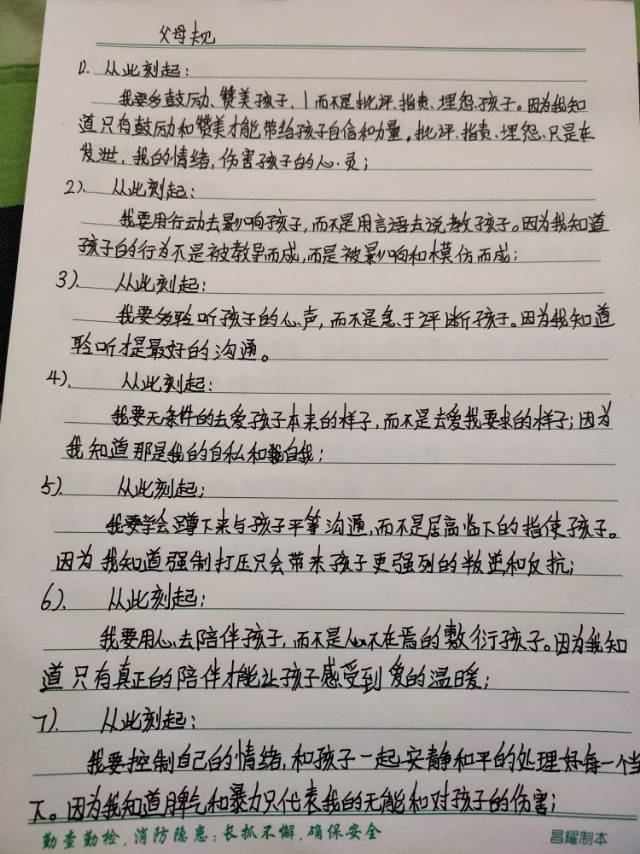 父母规
1). 从此刻起：
我要多鼓励、赞美孩子，而不是批评、指责、埋怨孩子。因为我知
道只有鼓励和赞美才能带给孩子自信和力量。批评、指责、埋怨、只是在
发泄，我的情绪，伤害孩子的心灵；
2). 从此刻起：
我要用行动去影响孩子，而不是用言语去说教孩子。因为我知道
孩子的行为不是被教导而成，而是被影响和模仿而成；
3) 从此刻起：
我要多聆听孩子的心声，而不是急于评断孩子。因为我知道
聆听才是最好的沟通。
4). 从此刻起：
我要无条件的去爱孩子本来的样子，而不是去爱我要求的样子；因为
我知道那是我的自私和自我；
5). 从此刻起；
我要学会蹲下来与孩子平等沟通，而不是居高临下的指使孩子。
因为我知道强制打压只会带来孩子更强烈的叛逆和反抗；
6). 从此刻起；
我要用心去陪伴孩子，而不是心不在焉的敷衍孩子。因为我知
道只有真正的陪伴才能让孩子感受到爱的温暖；
7). 从此刻起：
我要控制自己的情绪，和孩子一起安静和平的处理好每一个当
下。因为我知道脾气和暴力只代表我的无能和对孩子的伤害；
勤查勤检，消防隐患；长抓不懈，确保安全 昌耀制本